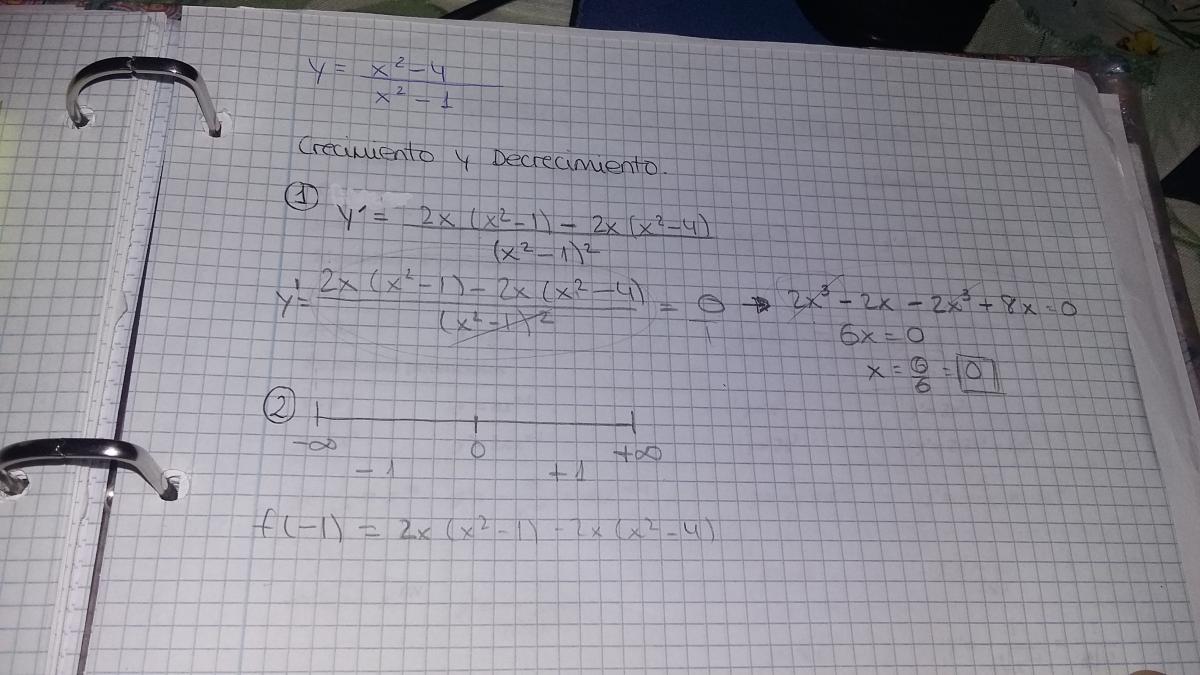 y = x² - 4
x² - 1
Crecimiento y Decrecimiento.
① y' = 2x (x² - 1) - 2x (x² - 4)
(x² - 1)²
y' = 2x (x² - 1) - 2x (x² - 4) = 0 → 2x³ - 2x - 2x³ + 8x = 0
(x² - 1)² 1
6x = 0
x = 0/6 = 0
②
-∞ 0 +∞
-1 +1
f(-1) = 2x (x² - 1) - 2x (x² - 4)